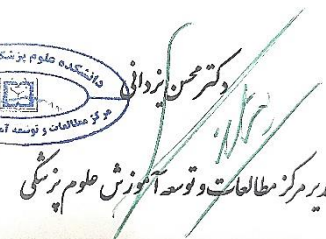 دانشکده علوم پزشک
مرکز مطالعات و توسعه آم
دکتر محسن یزدانی
دیر مرکز مطالعات و توسعه آموزش علوم پزشکی